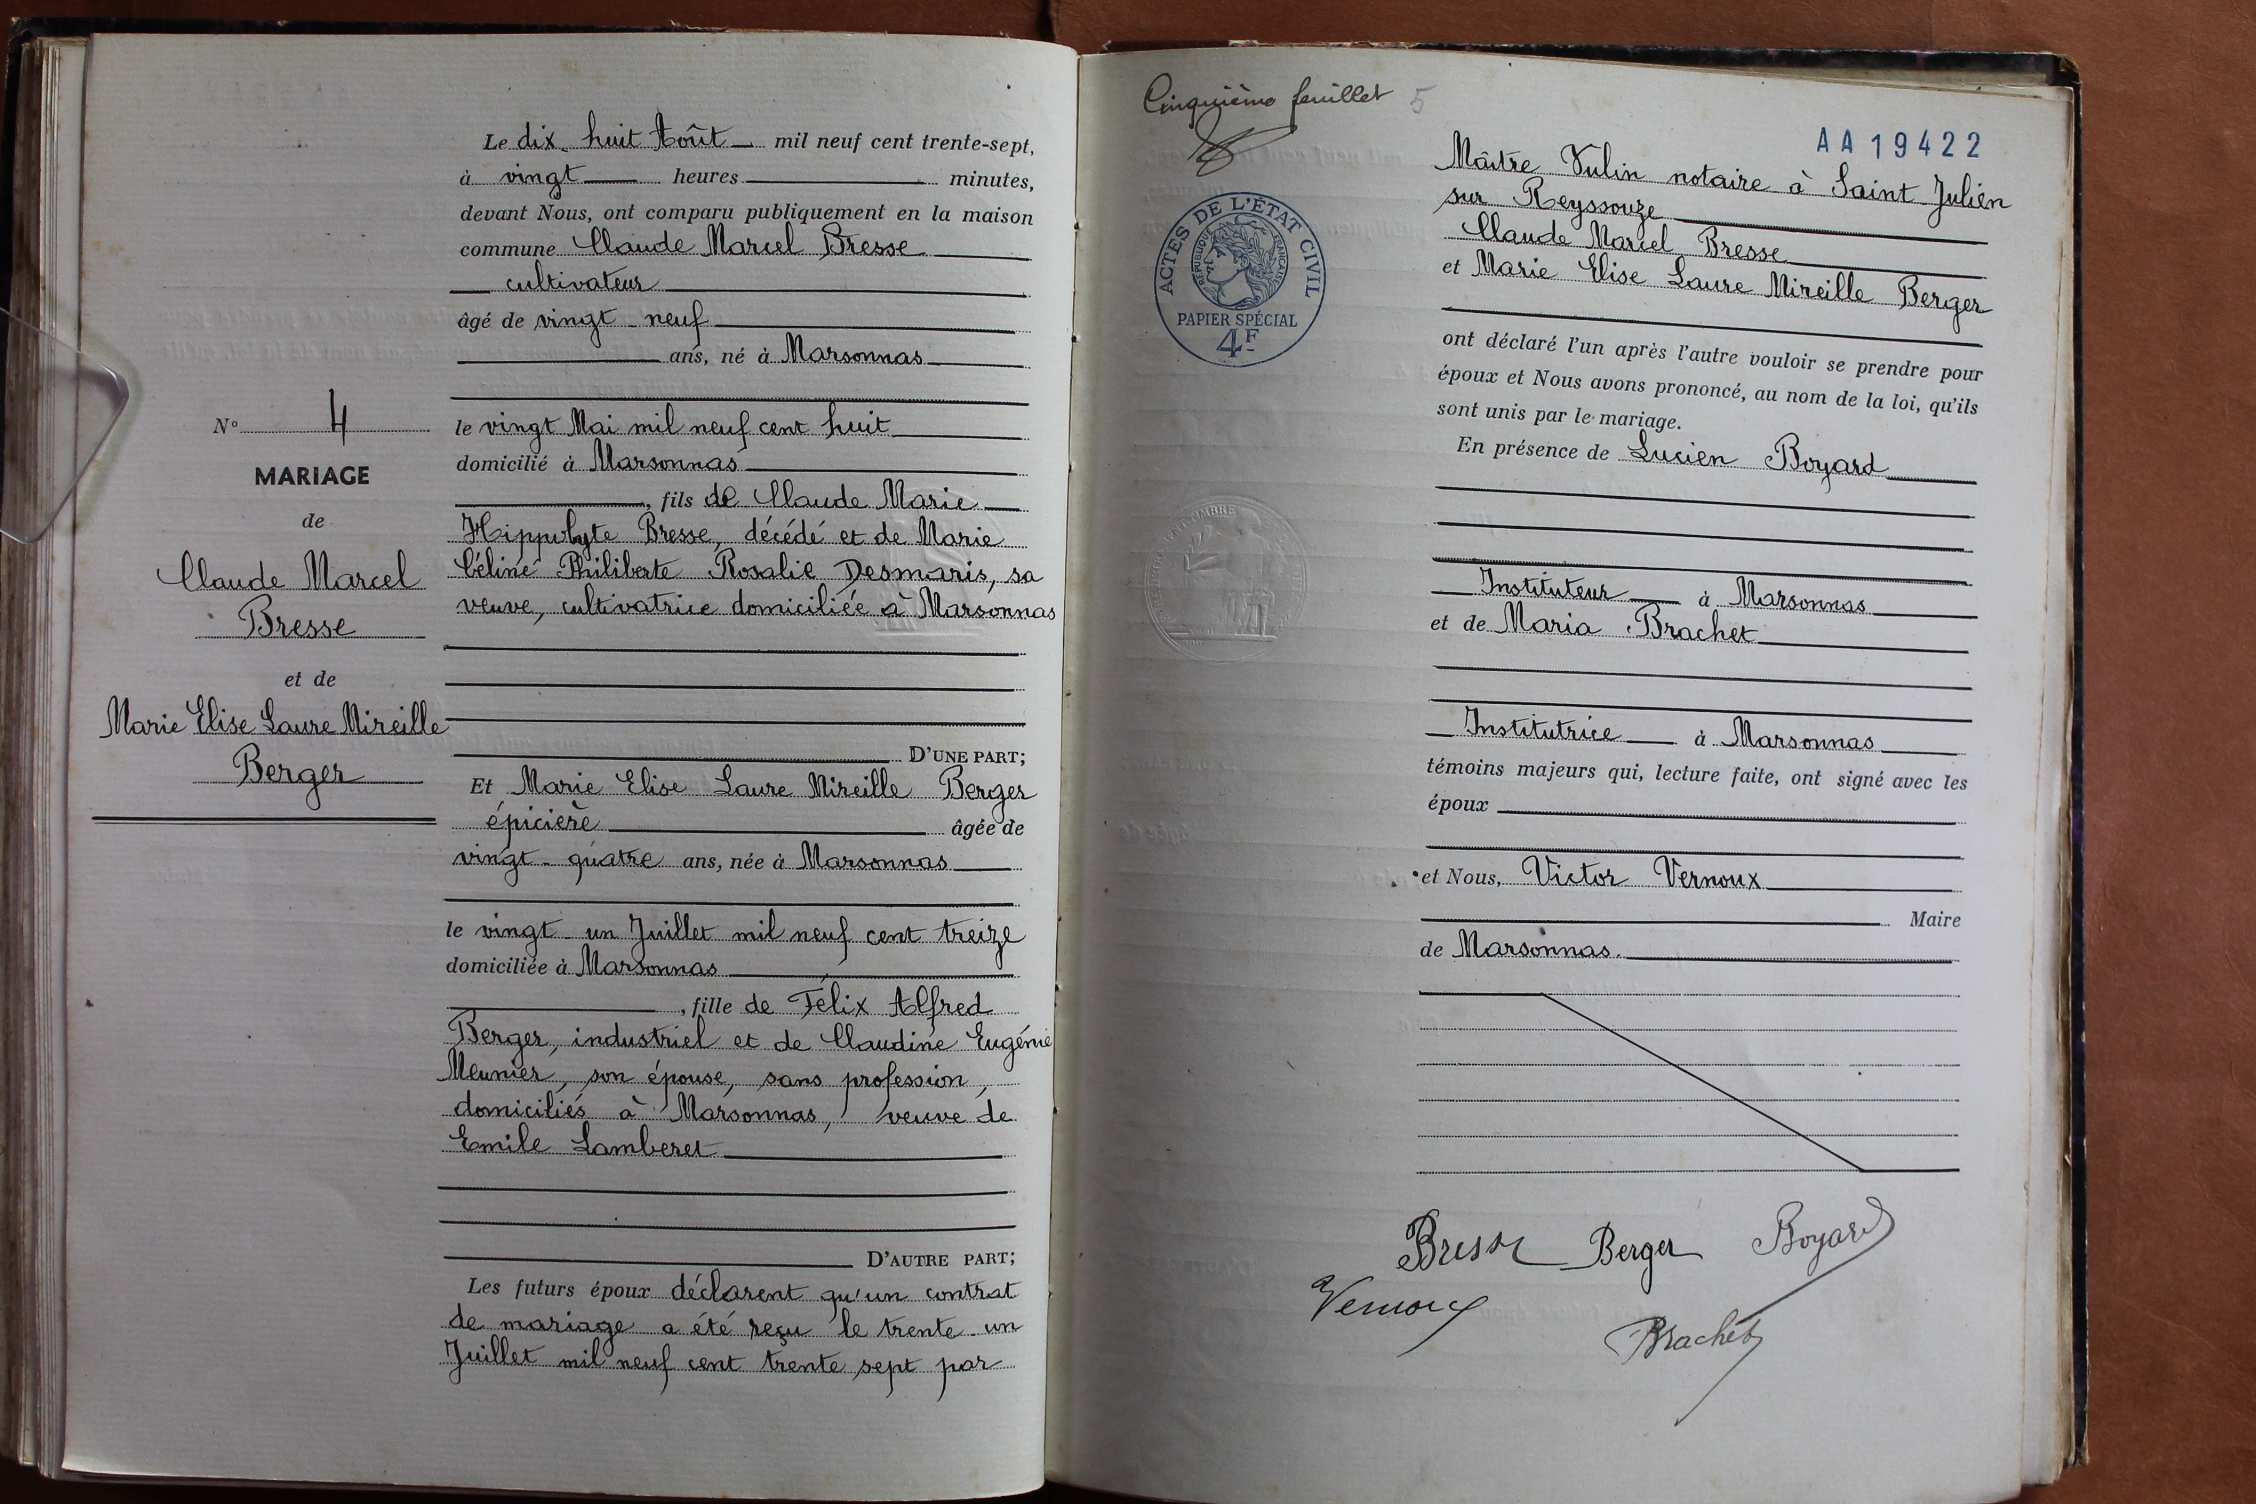 Le dix-huit Août mil neuf cent trente-sept,
à vingt heures minutes,
devant Nous, ont comparu publiquement en la maison
commune Claude Marcel Bresse
cultivateur
âgé de vingt-neuf
ans, né à Marsonnas
le vingt Mai mil neuf cent huit
domicilié à Marsonnas
, fils de Claude Marie
Hippolyte Bresse, décédé et de Marie
Céline Philiberte Rosalie Desmaris, sa
veuve, cultivatrice domiciliée à Marsonnas
D'UNE PART;
Et Marie Elise Laure Mireille Berger
épicière âgée de
vingt-quatre ans, née à Marsonnas
le vingt-un Juillet mil neuf cent treize
domiciliée à Marsonnas
, fille de Félix Alfred
Berger, industriel et de Claudine Eugénie
Meunier, son épouse, sans profession,
domiciliés à Marsonnas, veuve de
Emile Lamberet
D'AUTRE PART;
Les futurs époux déclarent qu'un contrat
de mariage a été reçu le trente-un
Juillet mil neuf cent trente sept par
N° 4
MARIAGE
de
Claude Marcel
Bresse
et de
Marie Elise Laure Mireille
Berger
Cinquième feuillet 5
AA19422
ACTES DE L'ÉTAT CIVIL
RÉPUBLIQUE FRANÇAISE
PAPIER SPÉCIAL
4F
Maître Vulin notaire à Saint-Julien
sur Reyssouze
Claude Marcel Bresse
et Marie Elise Laure Mireille Berger
ont déclaré l'un après l'autre vouloir se prendre pour
époux et Nous avons prononcé, au nom de la loi, qu'ils
sont unis par le mariage.
En présence de Lucien Boyard
Instituteur à Marsonnas
et de Maria Brachet
Institutrice à Marsonnas
témoins majeurs qui, lecture faite, ont signé avec les
époux
et Nous, Victor Vernoux
Maire
de Marsonnas.
Bresse Berger Boyard
Vernoux
Brachet